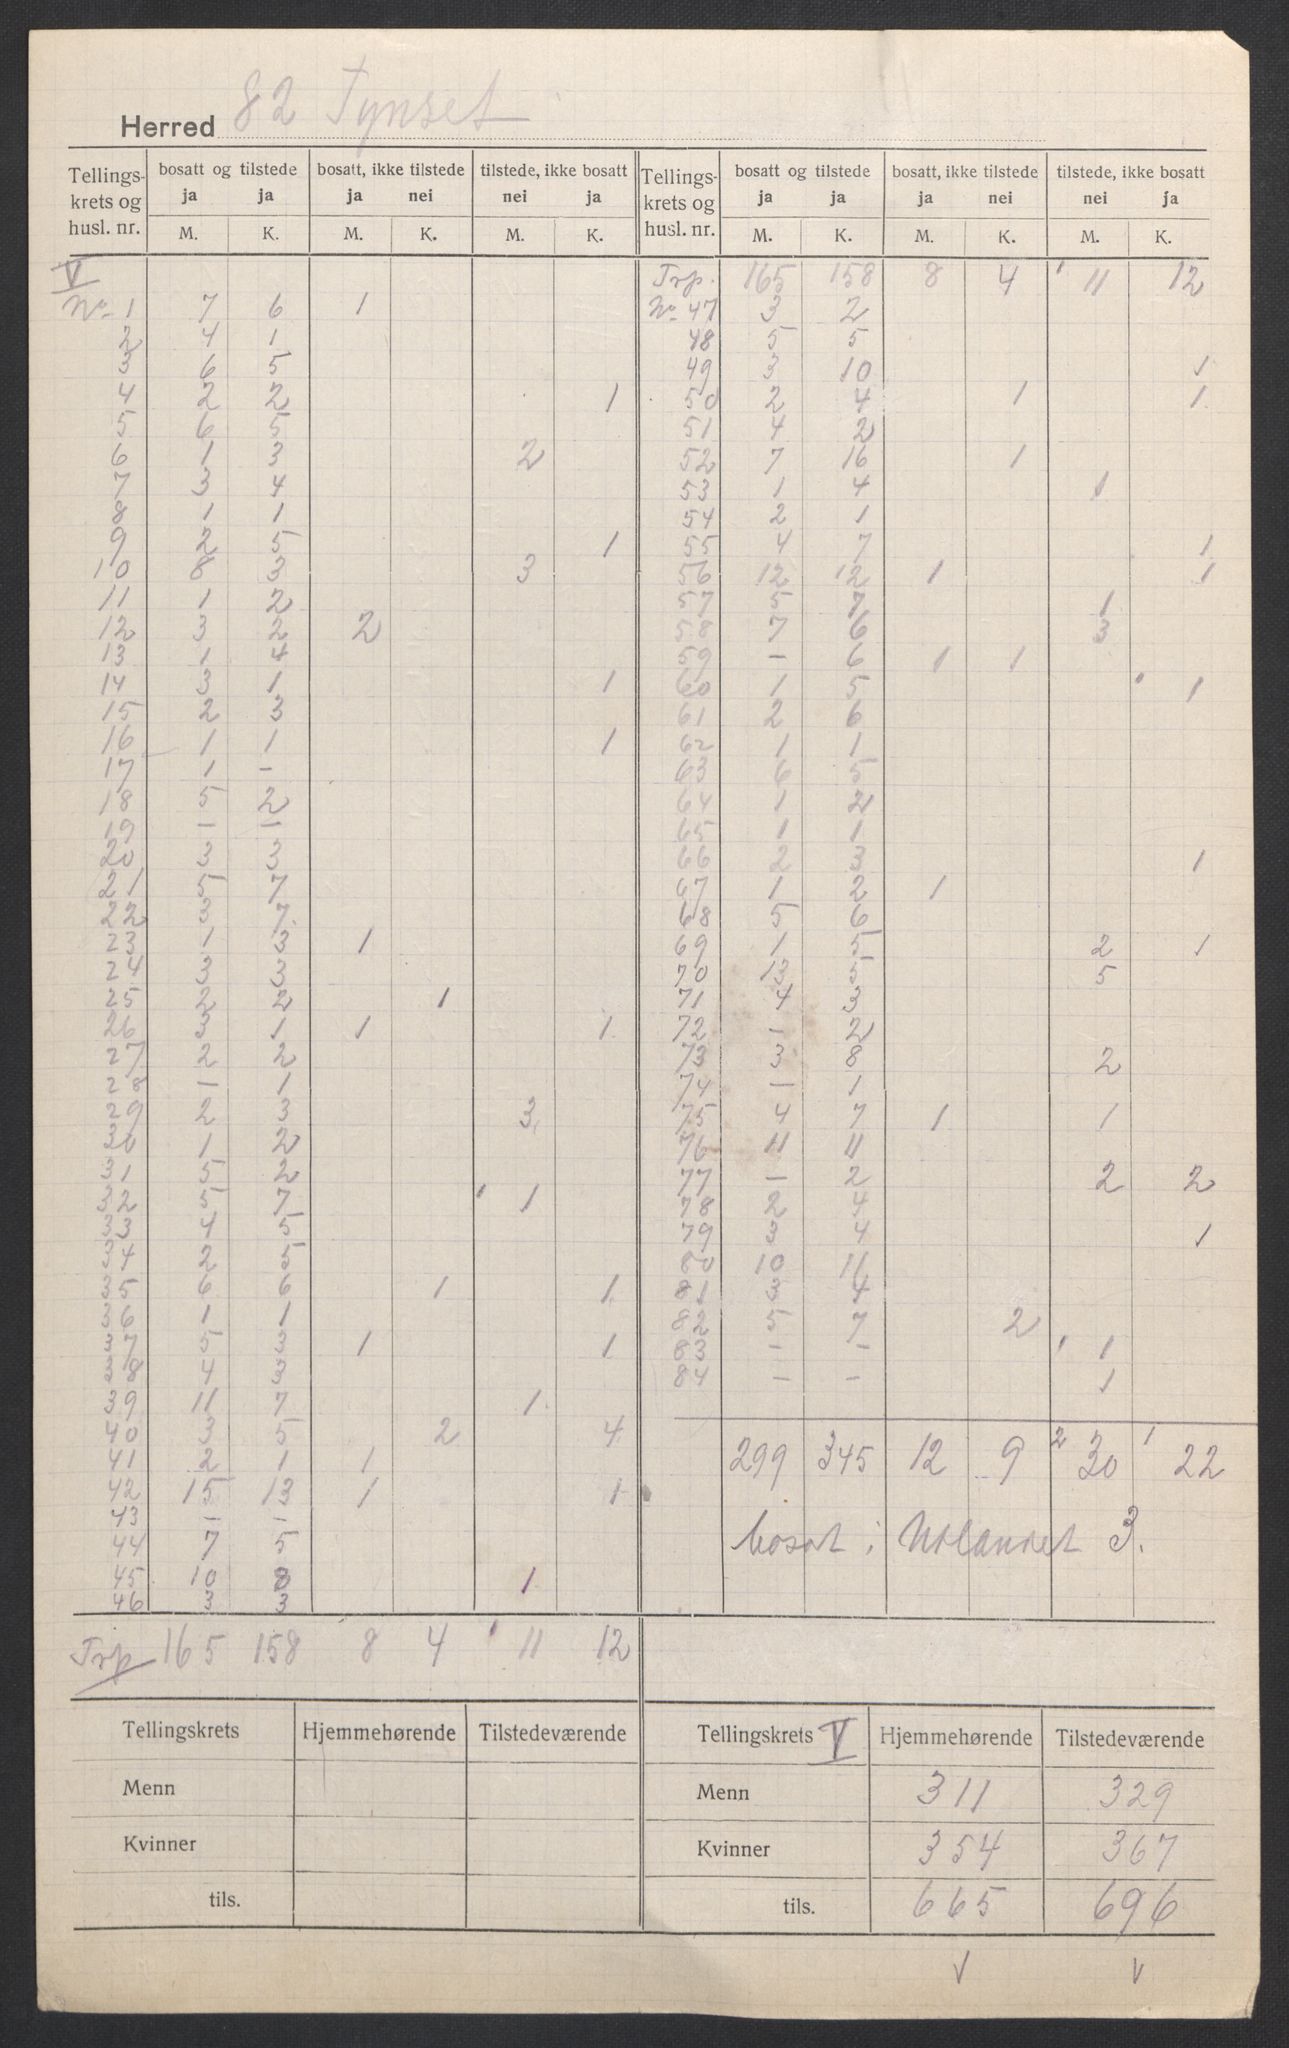 Herred 82 Tynset
Tellings-krets og husl. nr. | bosatt og tilstede ja ja | bosatt, ikke tilstede ja nei | tilstede, ikke bosatt nei ja | Tellings-krets og husl. nr. | bosatt og tilstede ja ja | bosatt, ikke tilstede ja nei | tilstede, ikke bosatt nei ja
M. K. M. K. M. K. M. K. M. K. M. K.
V
No 1 7 6 1
2 4 1
3 6 5
4 2 2 1
5 6 5
6 1 3 2
7 3 4
8 1 1
9 2 5 1
10 8 3 3
11 1 2
12 3 2 2
13 1 4
14 3 1 1
15 2 3
16 1 1 1
17 1 –
18 5 2
19 – –
20 3 3
21 5 7
22 3 7
23 1 3 1
24 3 3
25 2 2 1
26 3 1 1 1
27 2 2
28 – 1
29 2 3 3
30 1 2
31 5 2
32 5 7 ' 1
33 4 5
34 2 5
35 6 6 1 1
36 1 1
37 5 3 1 1
38 4 3
39 11 7 1
40 3 5 2 4
41 2 1 1
42 15 13 1 1
43 – –
44 7 5
45 10 8 1
46 3 3
Trp 165 158 8 4 ' 11 12
Trp. 165 158 8 4 ' 11 12
No 47 3 2
48 5 5
49 3 10 1
50 2 4 1 1
51 4 2
52 7 16 1
53 1 4 1
54 2 1
55 4 7 1
56 12 12 1 1
57 5 7 1
58 7 6 3
59 – 6 1 1
60 1 5 ' 1
61 2 6
62 1 1
63 6 5
64 1 2
65 1 1
66 2 3 1
67 1 2 1
68 5 6
69 1 5 2 1
70 13 5 5
71 4 3
72 – 2
73 3 8 2
74 – 1
75 4 7 1 1
76 11 11
77 – 2 2 2
78 2 4
79 3 4 1
80 10 11
81 3 4
82 5 7 2
83 – – ' 1
84 – – 1
299 345 12 9 2 30 1 22
bosat i Utlandet 3.
Tellingskrets Hjemmehørende Tilstedeværende
Menn
Kvinner
tils.
Tellingskrets V Hjemmehørende Tilstedeværende
Menn 311 329
Kvinner 354 367
tils. 665 696
V V